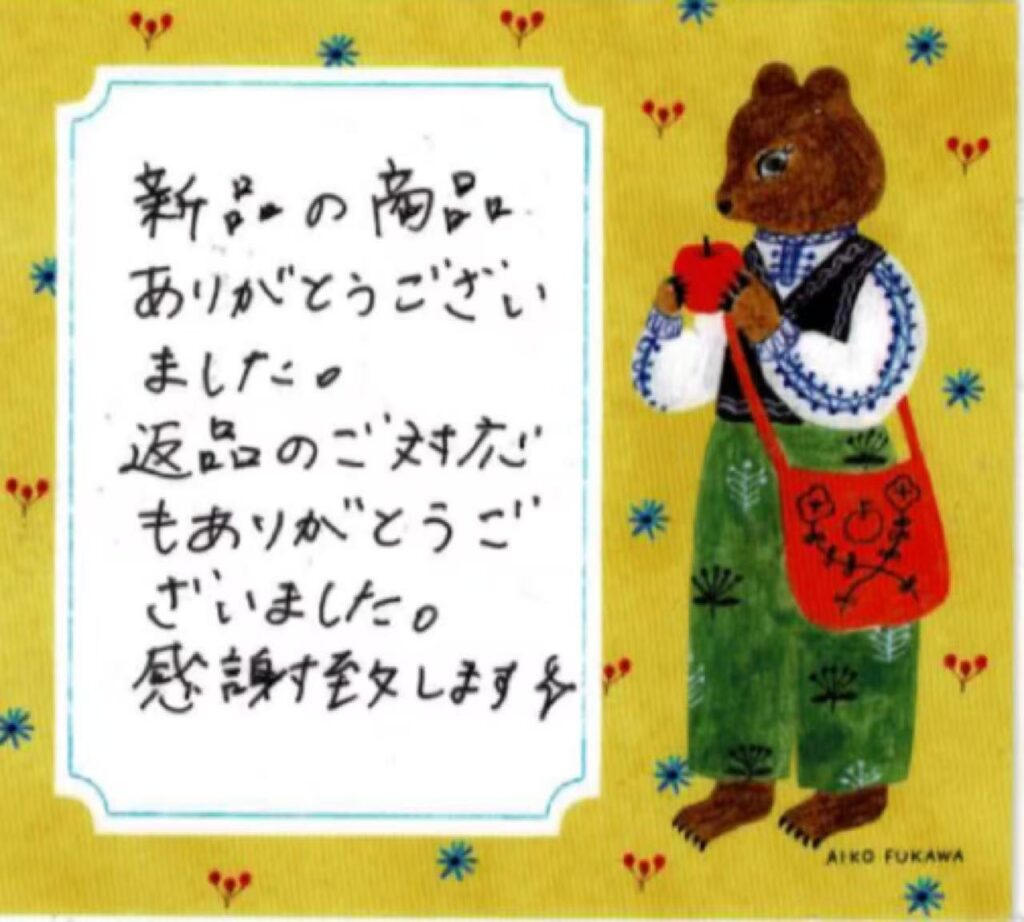 新品の商品
ありがとうござい
ました。
返品のご対応
もありがとうご
ざいました。
感謝致します
AIKO FUKAWA